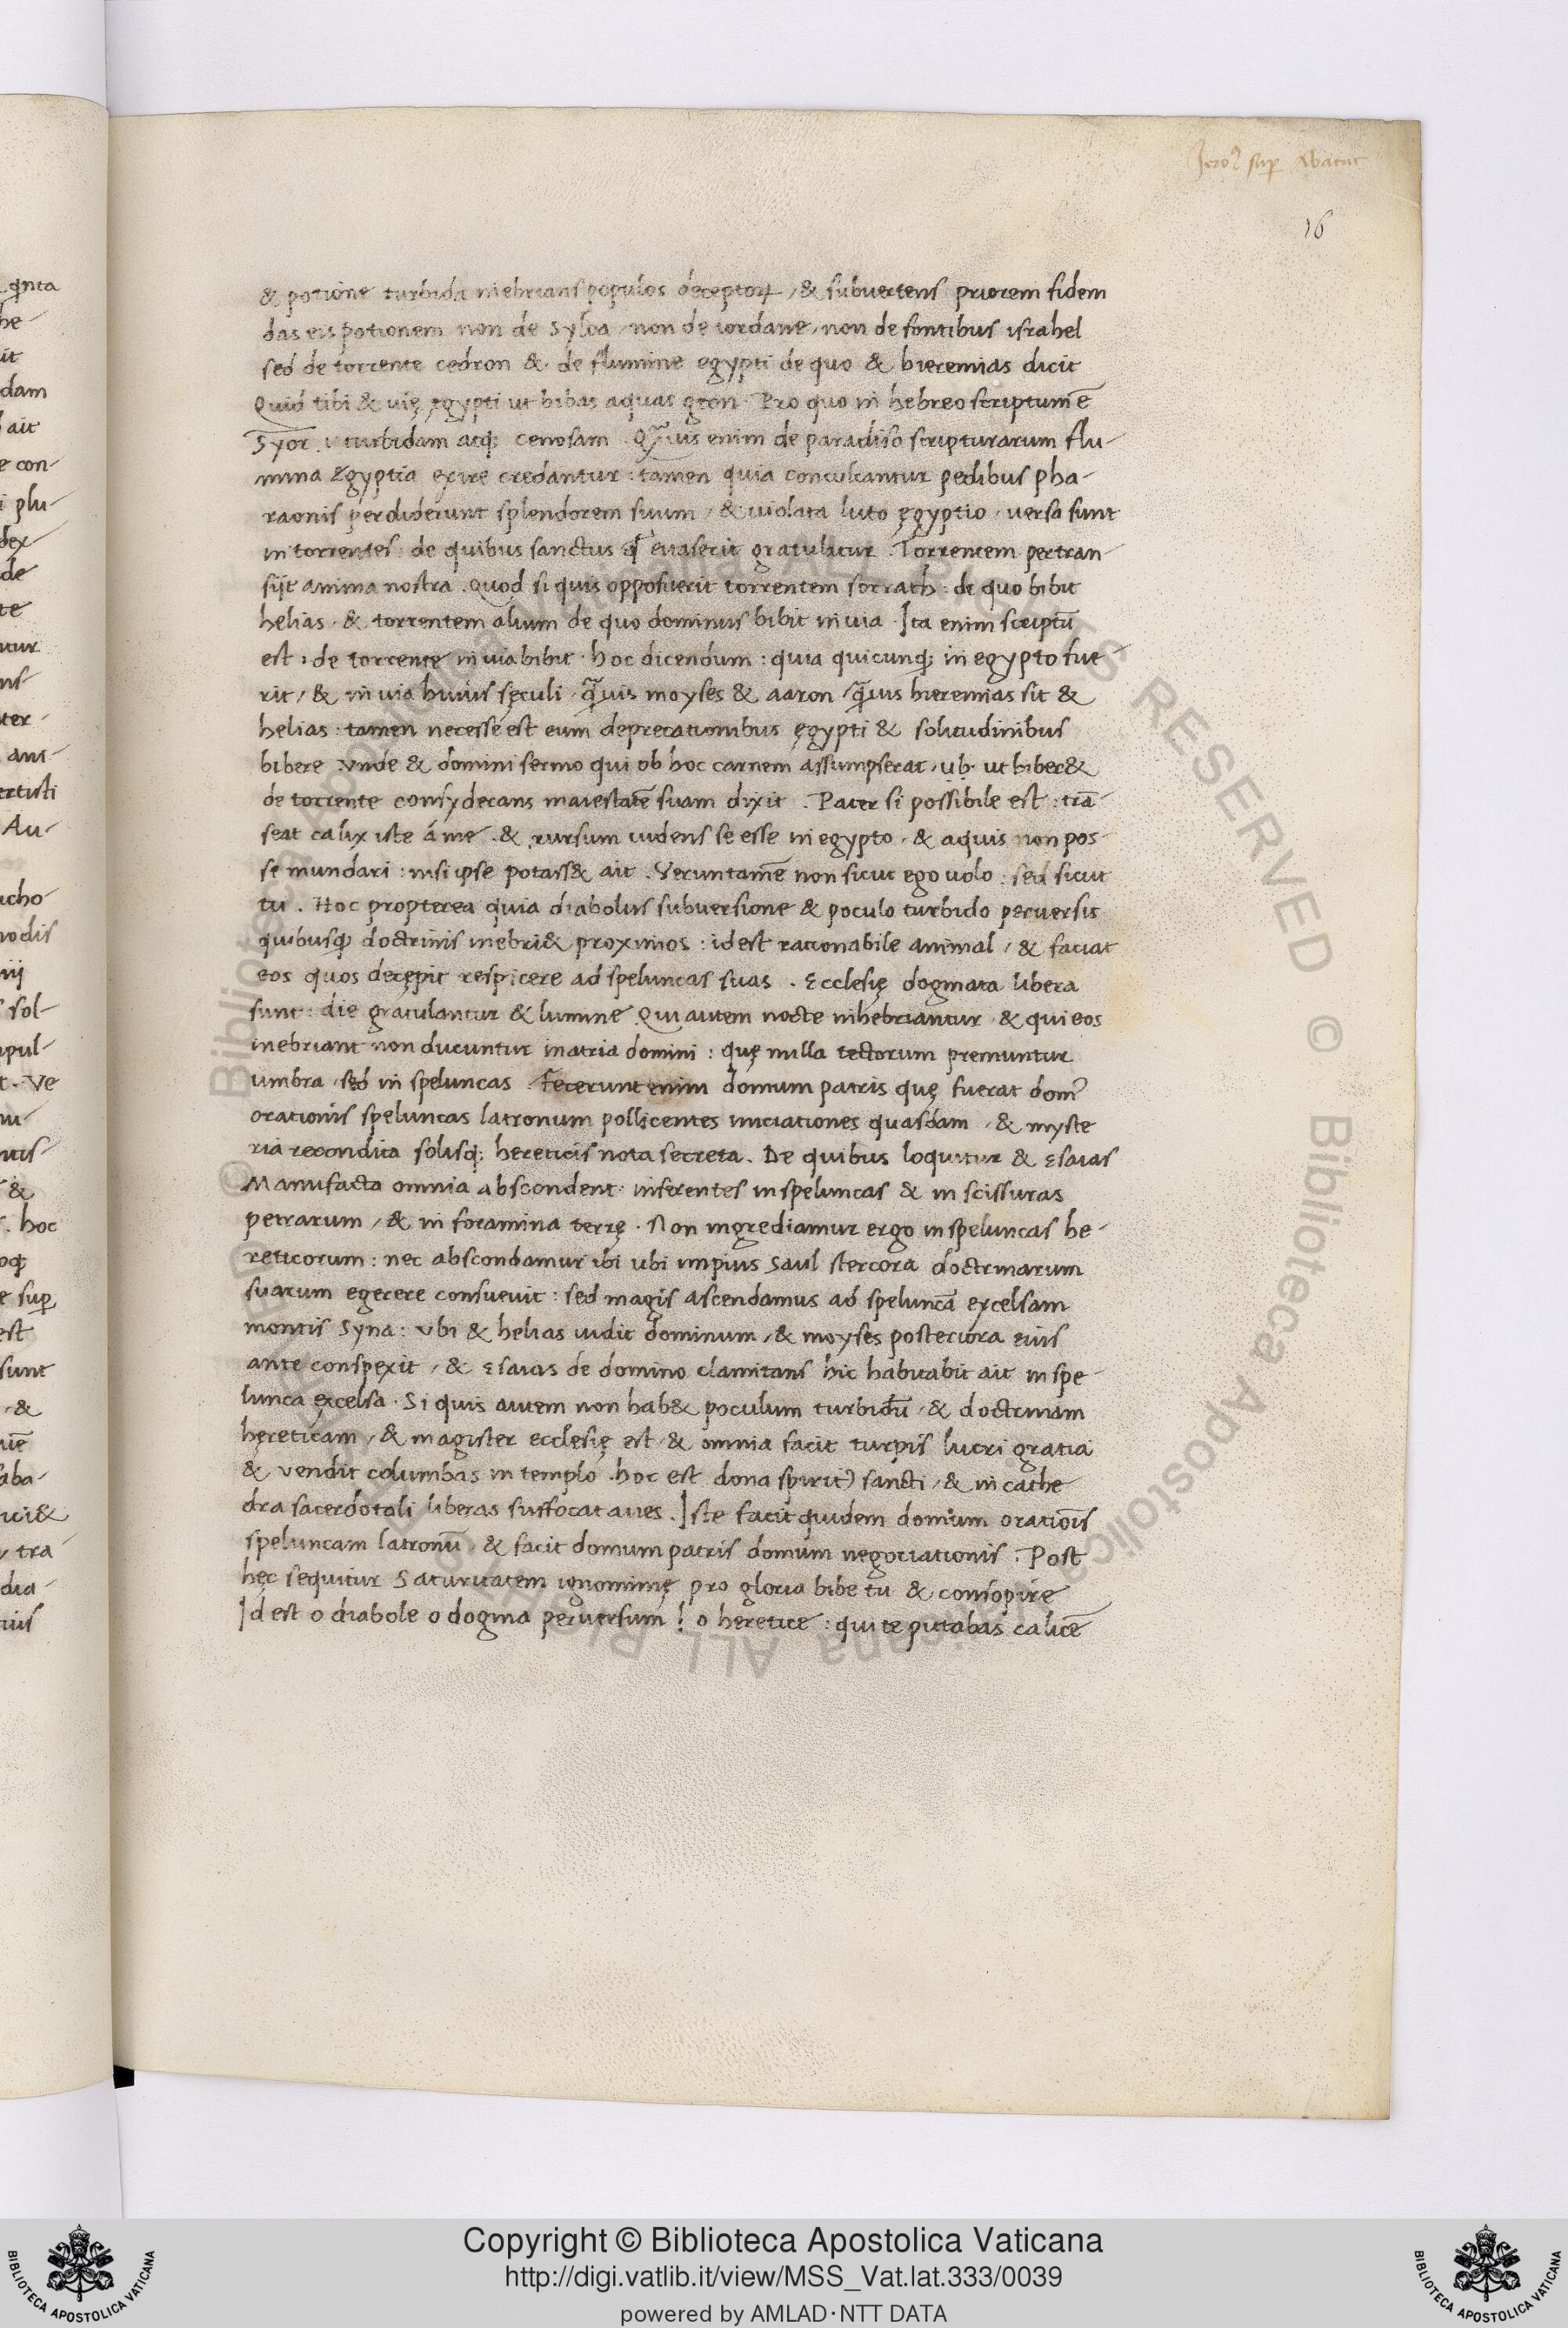 Jero² sup Abacuc
16
& potione turbida inebrians populos deceptoꝝ / & subuertens priorem fidem
das eis potionem non de Syloa / non de iordane / non de fontibus israhel
sed de torrente cedron & de flumine egypti de quo & hieremias dicit
Quid tibi & uię ęgypti ut bibas aquas geon · Pro quo in hebreo scriptum ē
Syor . ut turbidam atq; cenosam . Qꝗuis enim de paradiso scripturarum flu-
mina Egyptia exire credantur : tamen quia conculcantur pedibus pha-
raonis perdiderunt splendorem suum / & uiolata luto ęgyptio / uersa sunt
in torrentes : de quibus sanctus ꝙ euaserit gratulatur . Torrentem pertran-
sijt anima nostra . Quod si quis opposuerit torrentem sorrath : de quo bibit
helias · & torrentem alium de quo dominus bibit in uia · Ita enim scriptū
est : de torrente in uia bibit · hoc dicendum : quia quicunq; in egypto fue-
rit / & in uia huius sęculi / ꝗuis moyses & aaron / ꝗuis hieremias sit &
helias : tamen necesse est eum deprecationibus ęgypti & solitudinibus
bibere vnde & domini sermo qui ob hoc carnem assumpserat / ub · ut biber&
de torrente consyderans maiestatē suam dixit . Pater si possibile est : trā-
seat calix iste á me . & rursum uidens se esse in egypto / & aquis non pos-
se mundari : nisi ipse potass& ait . Veruntamē non sicut ego uolo : sed sicut
tu . Hoc propterea quia diabolus subuersione & poculo turbido peruersis
quibusq; doctrinis inebri& proximos : id est rationabile animal / & faciat
eos quos decępit respicere ad speluncas suas . Ecclesię dogmata libera
sunt : die gratulantur & lumine . Qui autem nocte inhebriantur / & qui eos
inebriant non ducuntur in atria domini : quę nulla tectorum premuntur
umbra / sed in speluncas . Fecerunt enim domum patris quę fuerat dom⁹
orationis speluncas latronum pollicentes iniciationes quasdam / & myste
ria recondita solisq; hereticis nota secreta . De quibus loquitur & Esaias
Manufacta omnia abscondent · inferentes in speluncas & in scissuras
petrarum / & in foramina terrę · Non ingrediamur ergo in speluncas he-
reticorum : nec abscondamur ibi ubi impius Saul stercora doctrinarum
suarum egerere consueuit : sed magis ascendamus ad speluncā excelsam
montis Syna : vbi & helias uidit dominum / & moyses posteriora eius
ante conspexit / & Esaias de domino clamitans hic habitabit ait in spe-
lunca excelsa · Si quis autem non hab& poculum turbidū / & doctrinam
hęreticam / & magister ecclesię est / & omnia facit turpis lucri gratia
& vendit columbas in templo · hoc est dona spirit⁹ sancti / & in cathe
dra sacerdotali liberas suffocat aues . Iste facit quidem domum orationis
speluncam latronū / & facit domum patris domum negociationis : Post
hęc sequitur Saturitatem ignominię pro gloria bibe tu & consopire
Id est o diabole o dogma peruersum ! o heretice : qui te putabas calicē
Copyright © Biblioteca Apostolica Vaticana
http://digi.vatlib.it/view/MSS_Vat.lat.333/0039
powered by AMLAD·NTT DATA